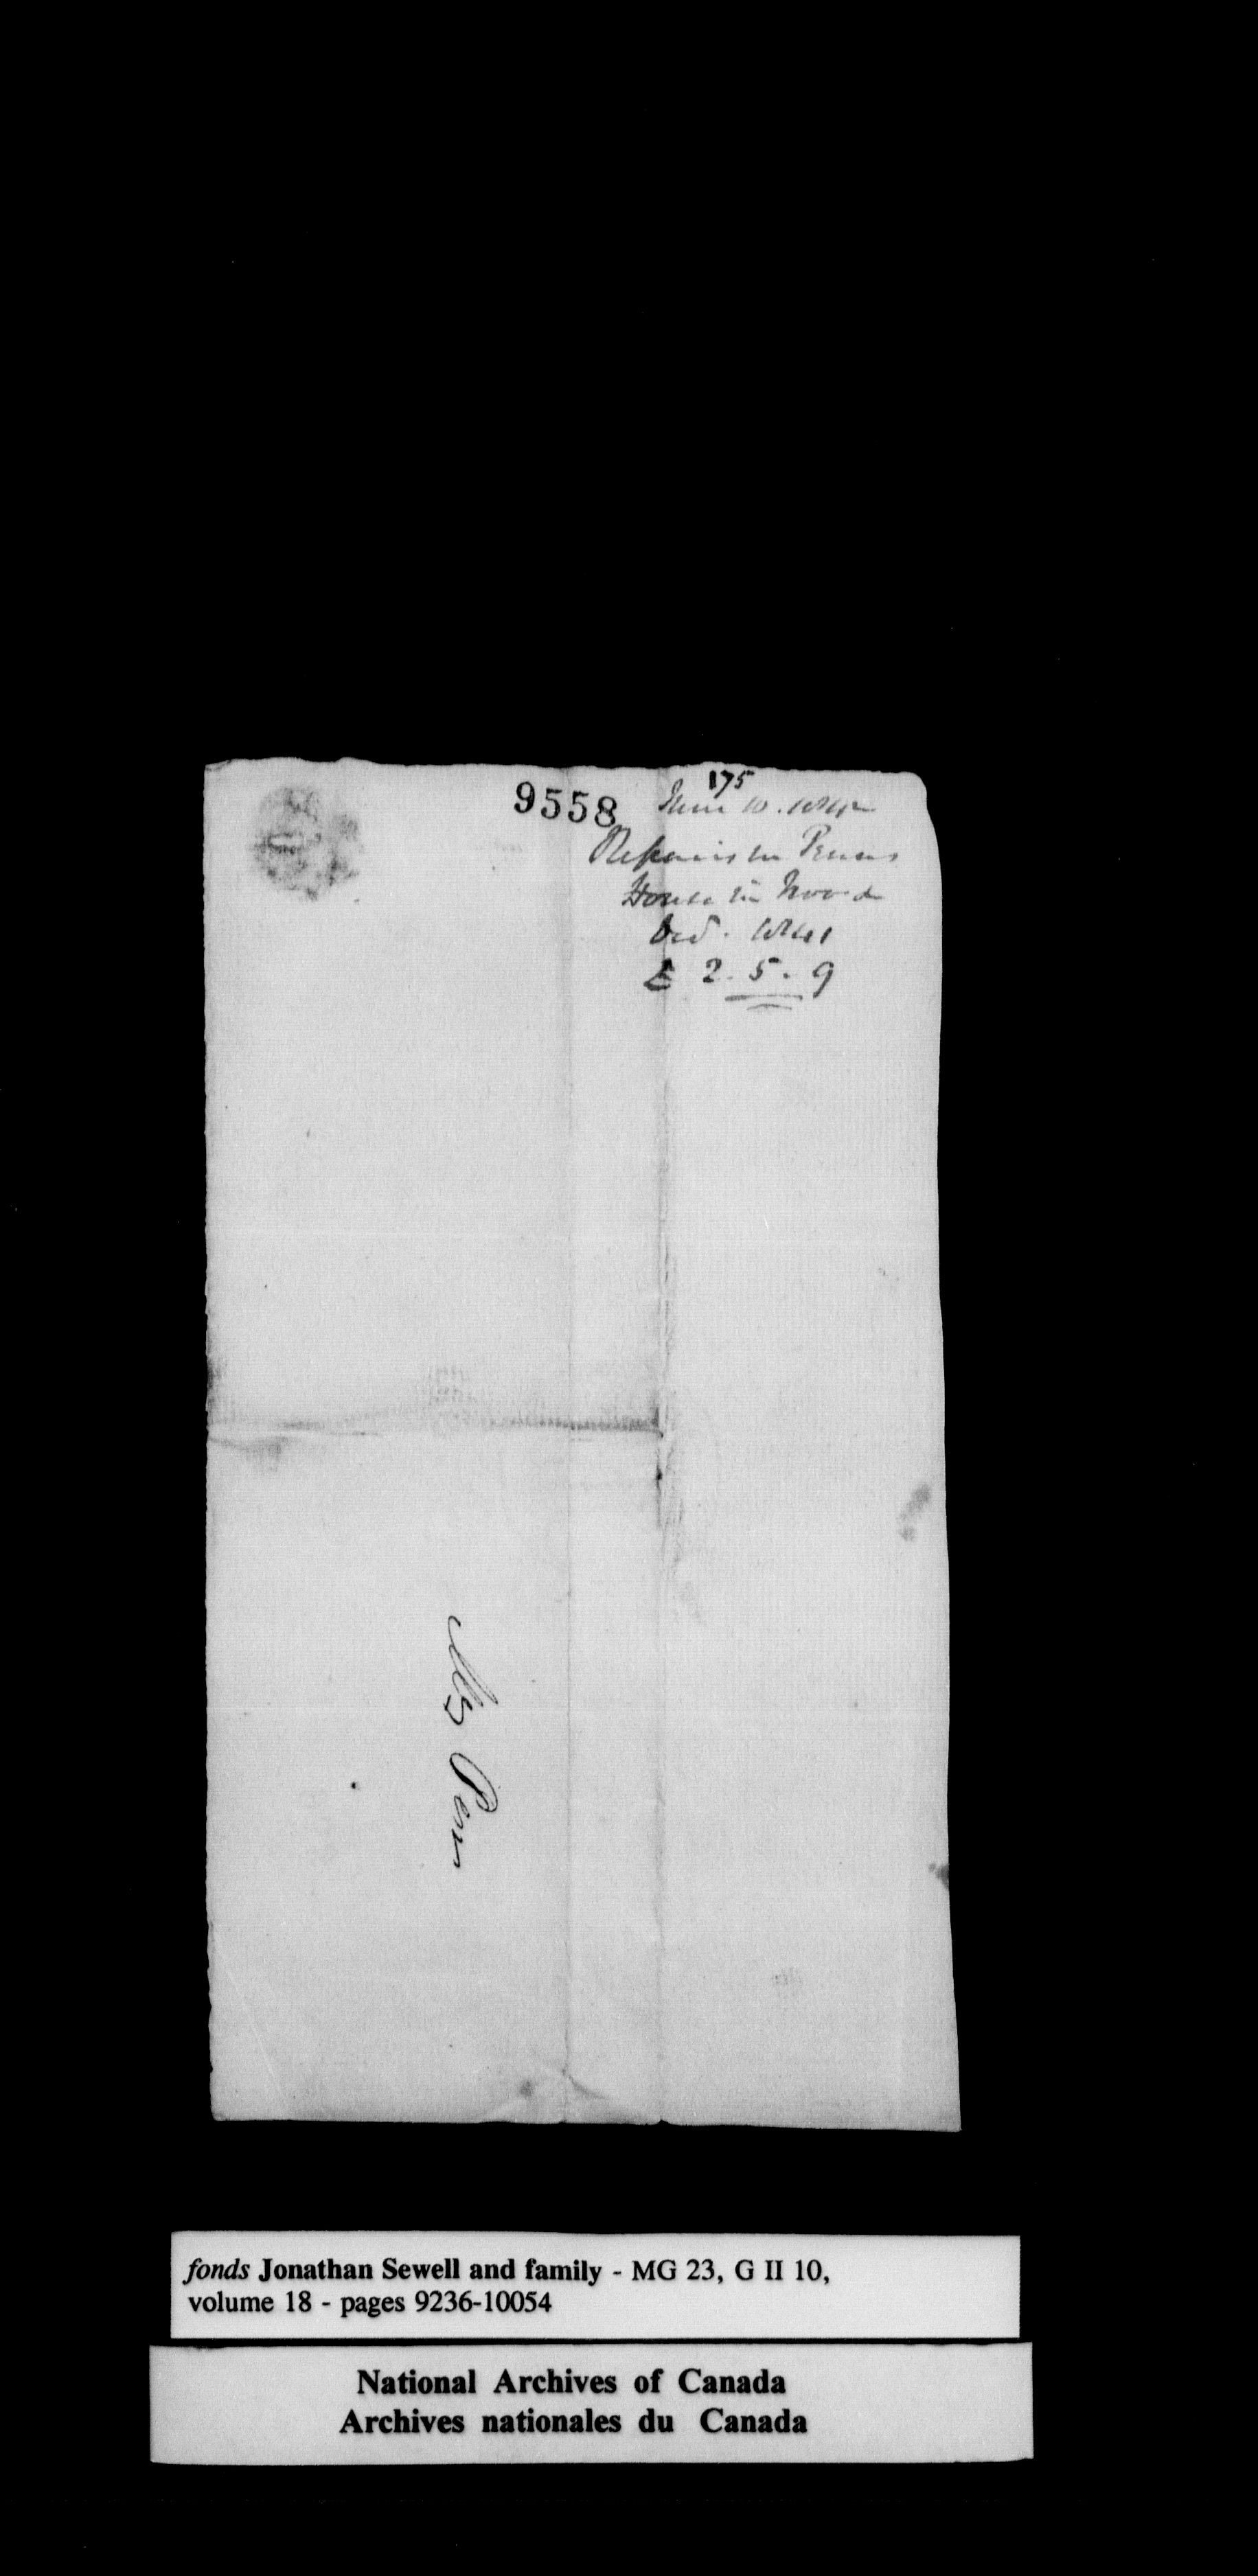 9558
175
June 10. 1842
Repairs to Penns
House in Wood
Oct. 1841
£ 2. 5. 9
Mr Penn
fonds Jonathan Sewell and family - MG 23, G II 10,
volume 18 - pages 9236-10054
National Archives of Canada
Archives nationales du Canada